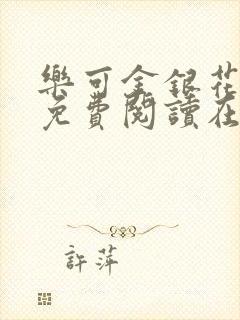 樂可金銀花
免費閱讀在
許萍